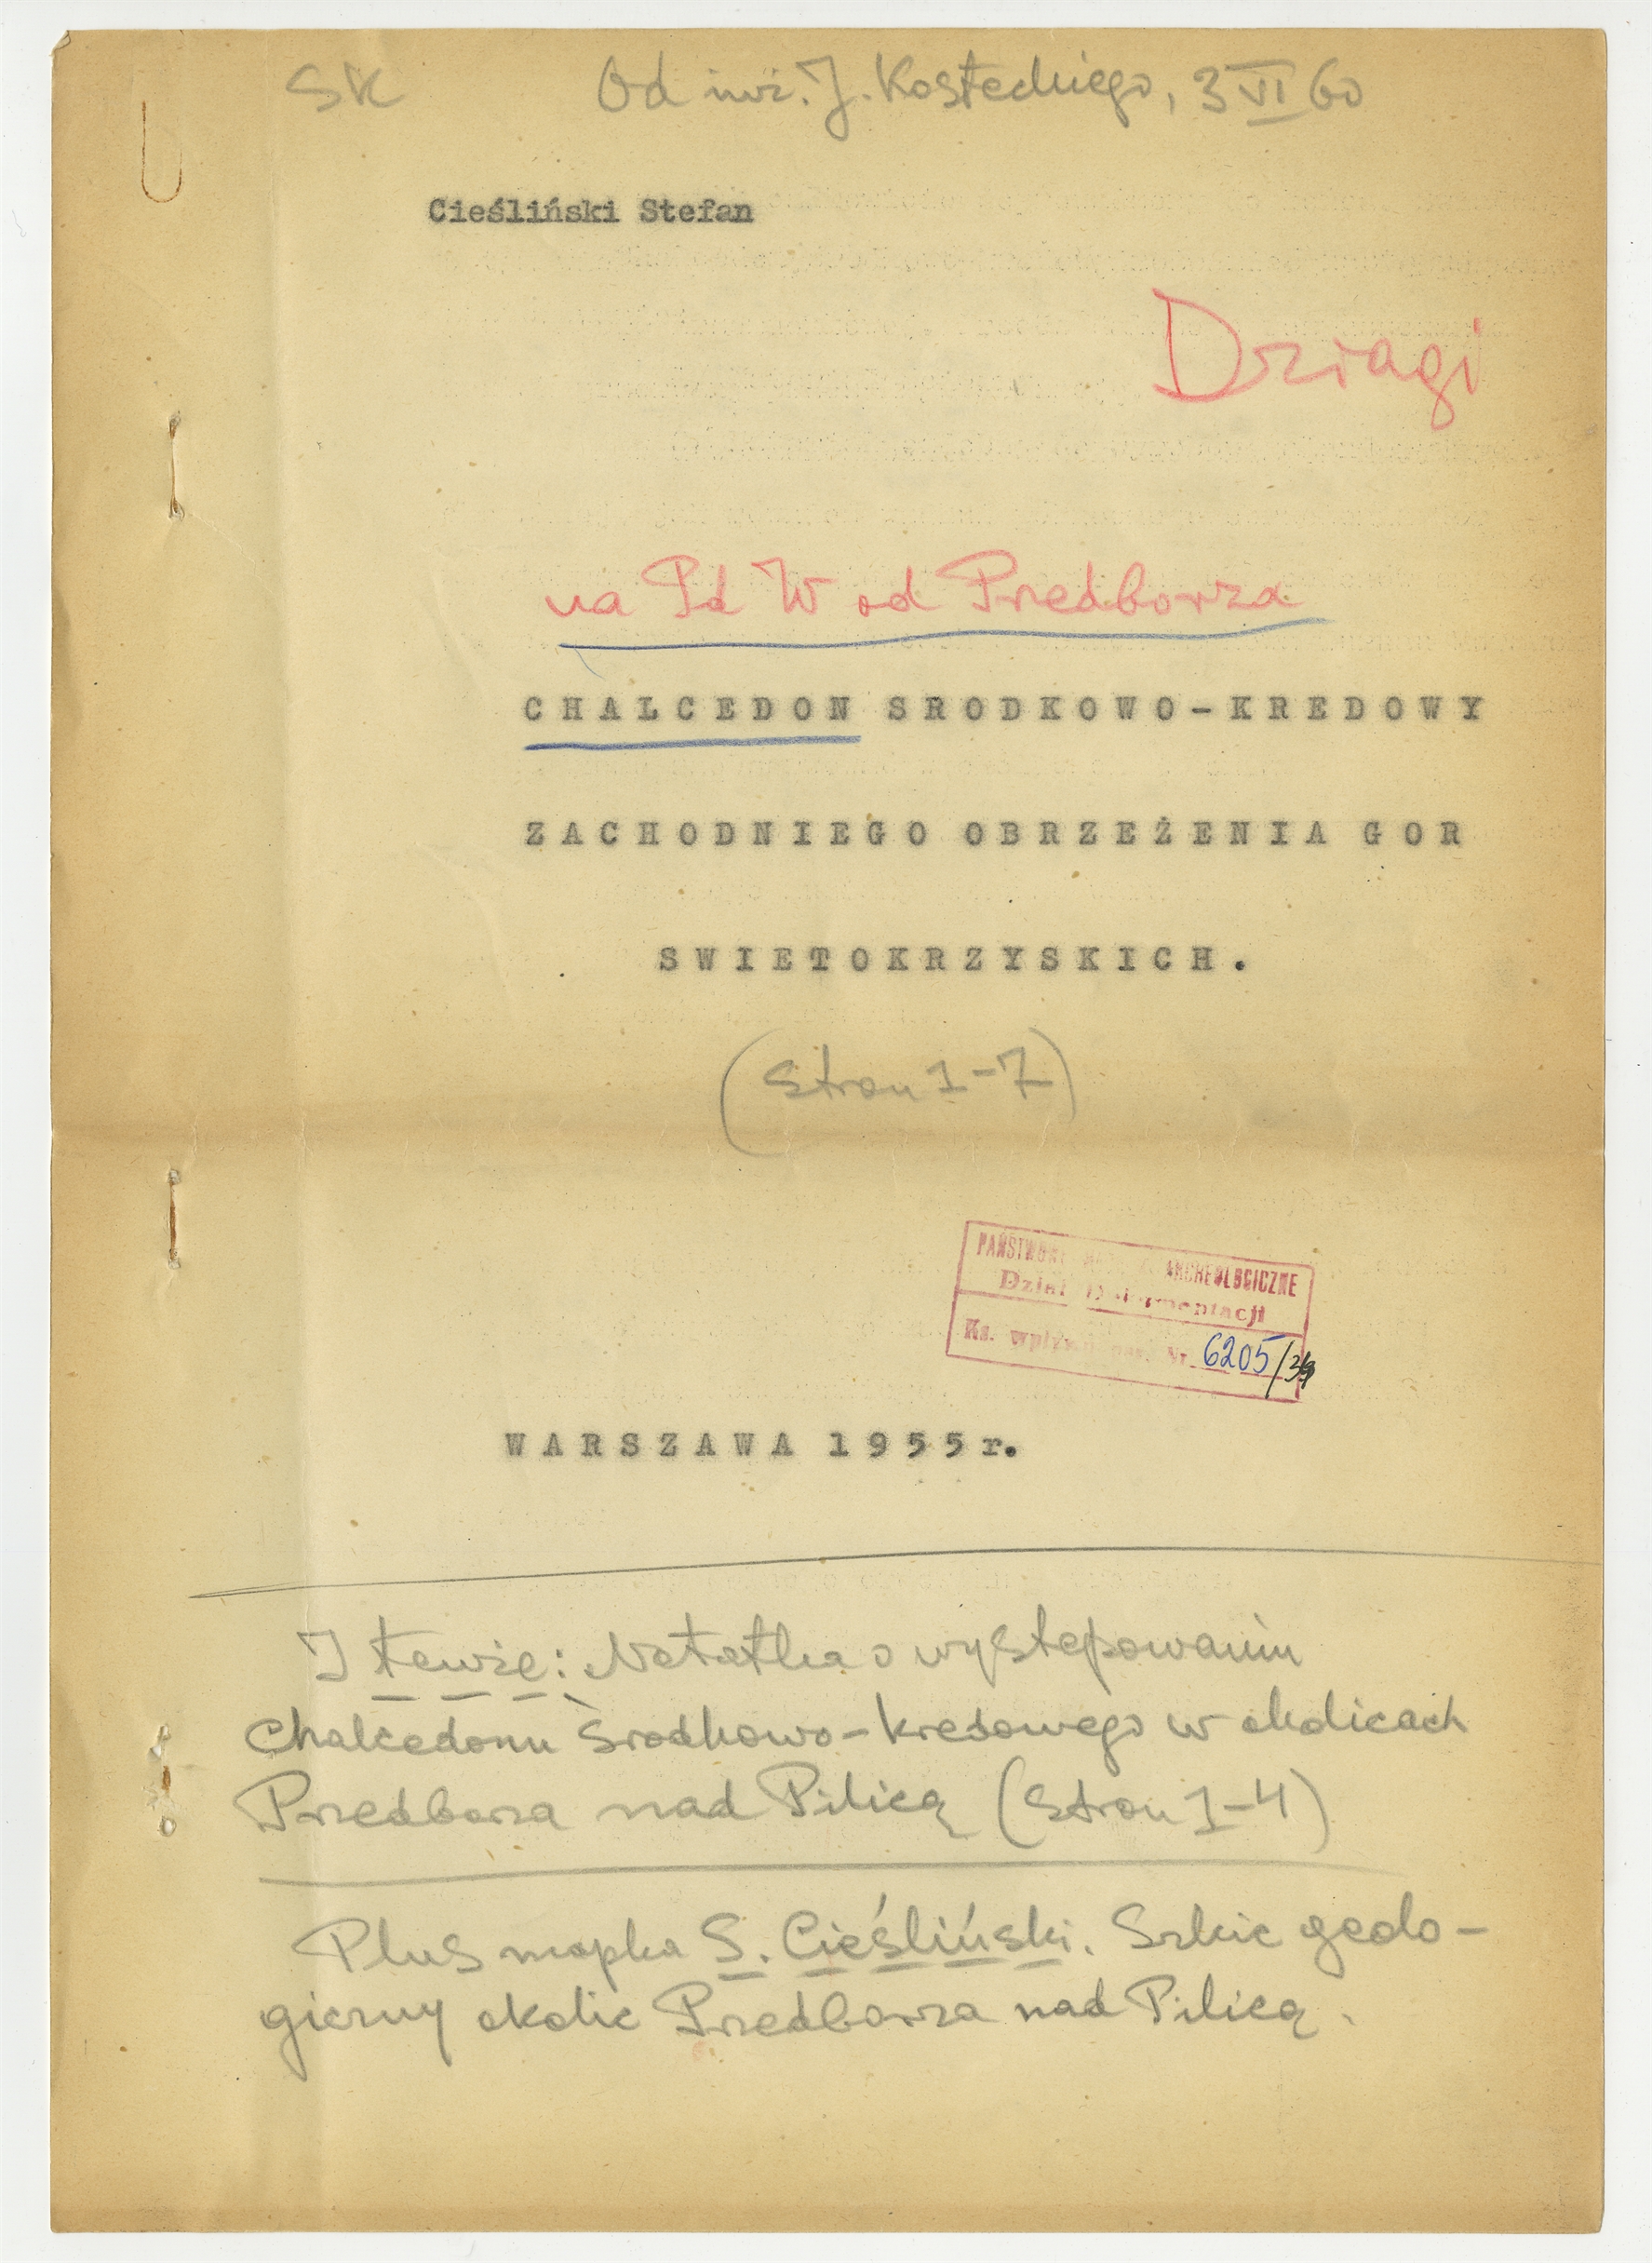 SK Od inż. J. Kosteckiego, 3 VI 60
Cieśliński Stefan
Dziagi
na Pd W od Przedborza
CHALCEDON SRODKOWO-KREDOWY
ZACHODNIEGO OBRZEŻENIA GOR
SWIETOKRZYSKICH.
(Stron 1-7)
ARCHEOLOGICZNE
Dział Dokumentacji
Ks. Nr. 6205/
WARSZAWA 1955 r.
I tewże: Notatka o występowaniu
Chalcedonu Środkowo-kredowego w okolicach
Przedborza nad Pilicą (Stron 1-4)
Plus mapka S. Cieśliński. Szkic geolo-
giczny okolic Przedborza nad Pilicą.